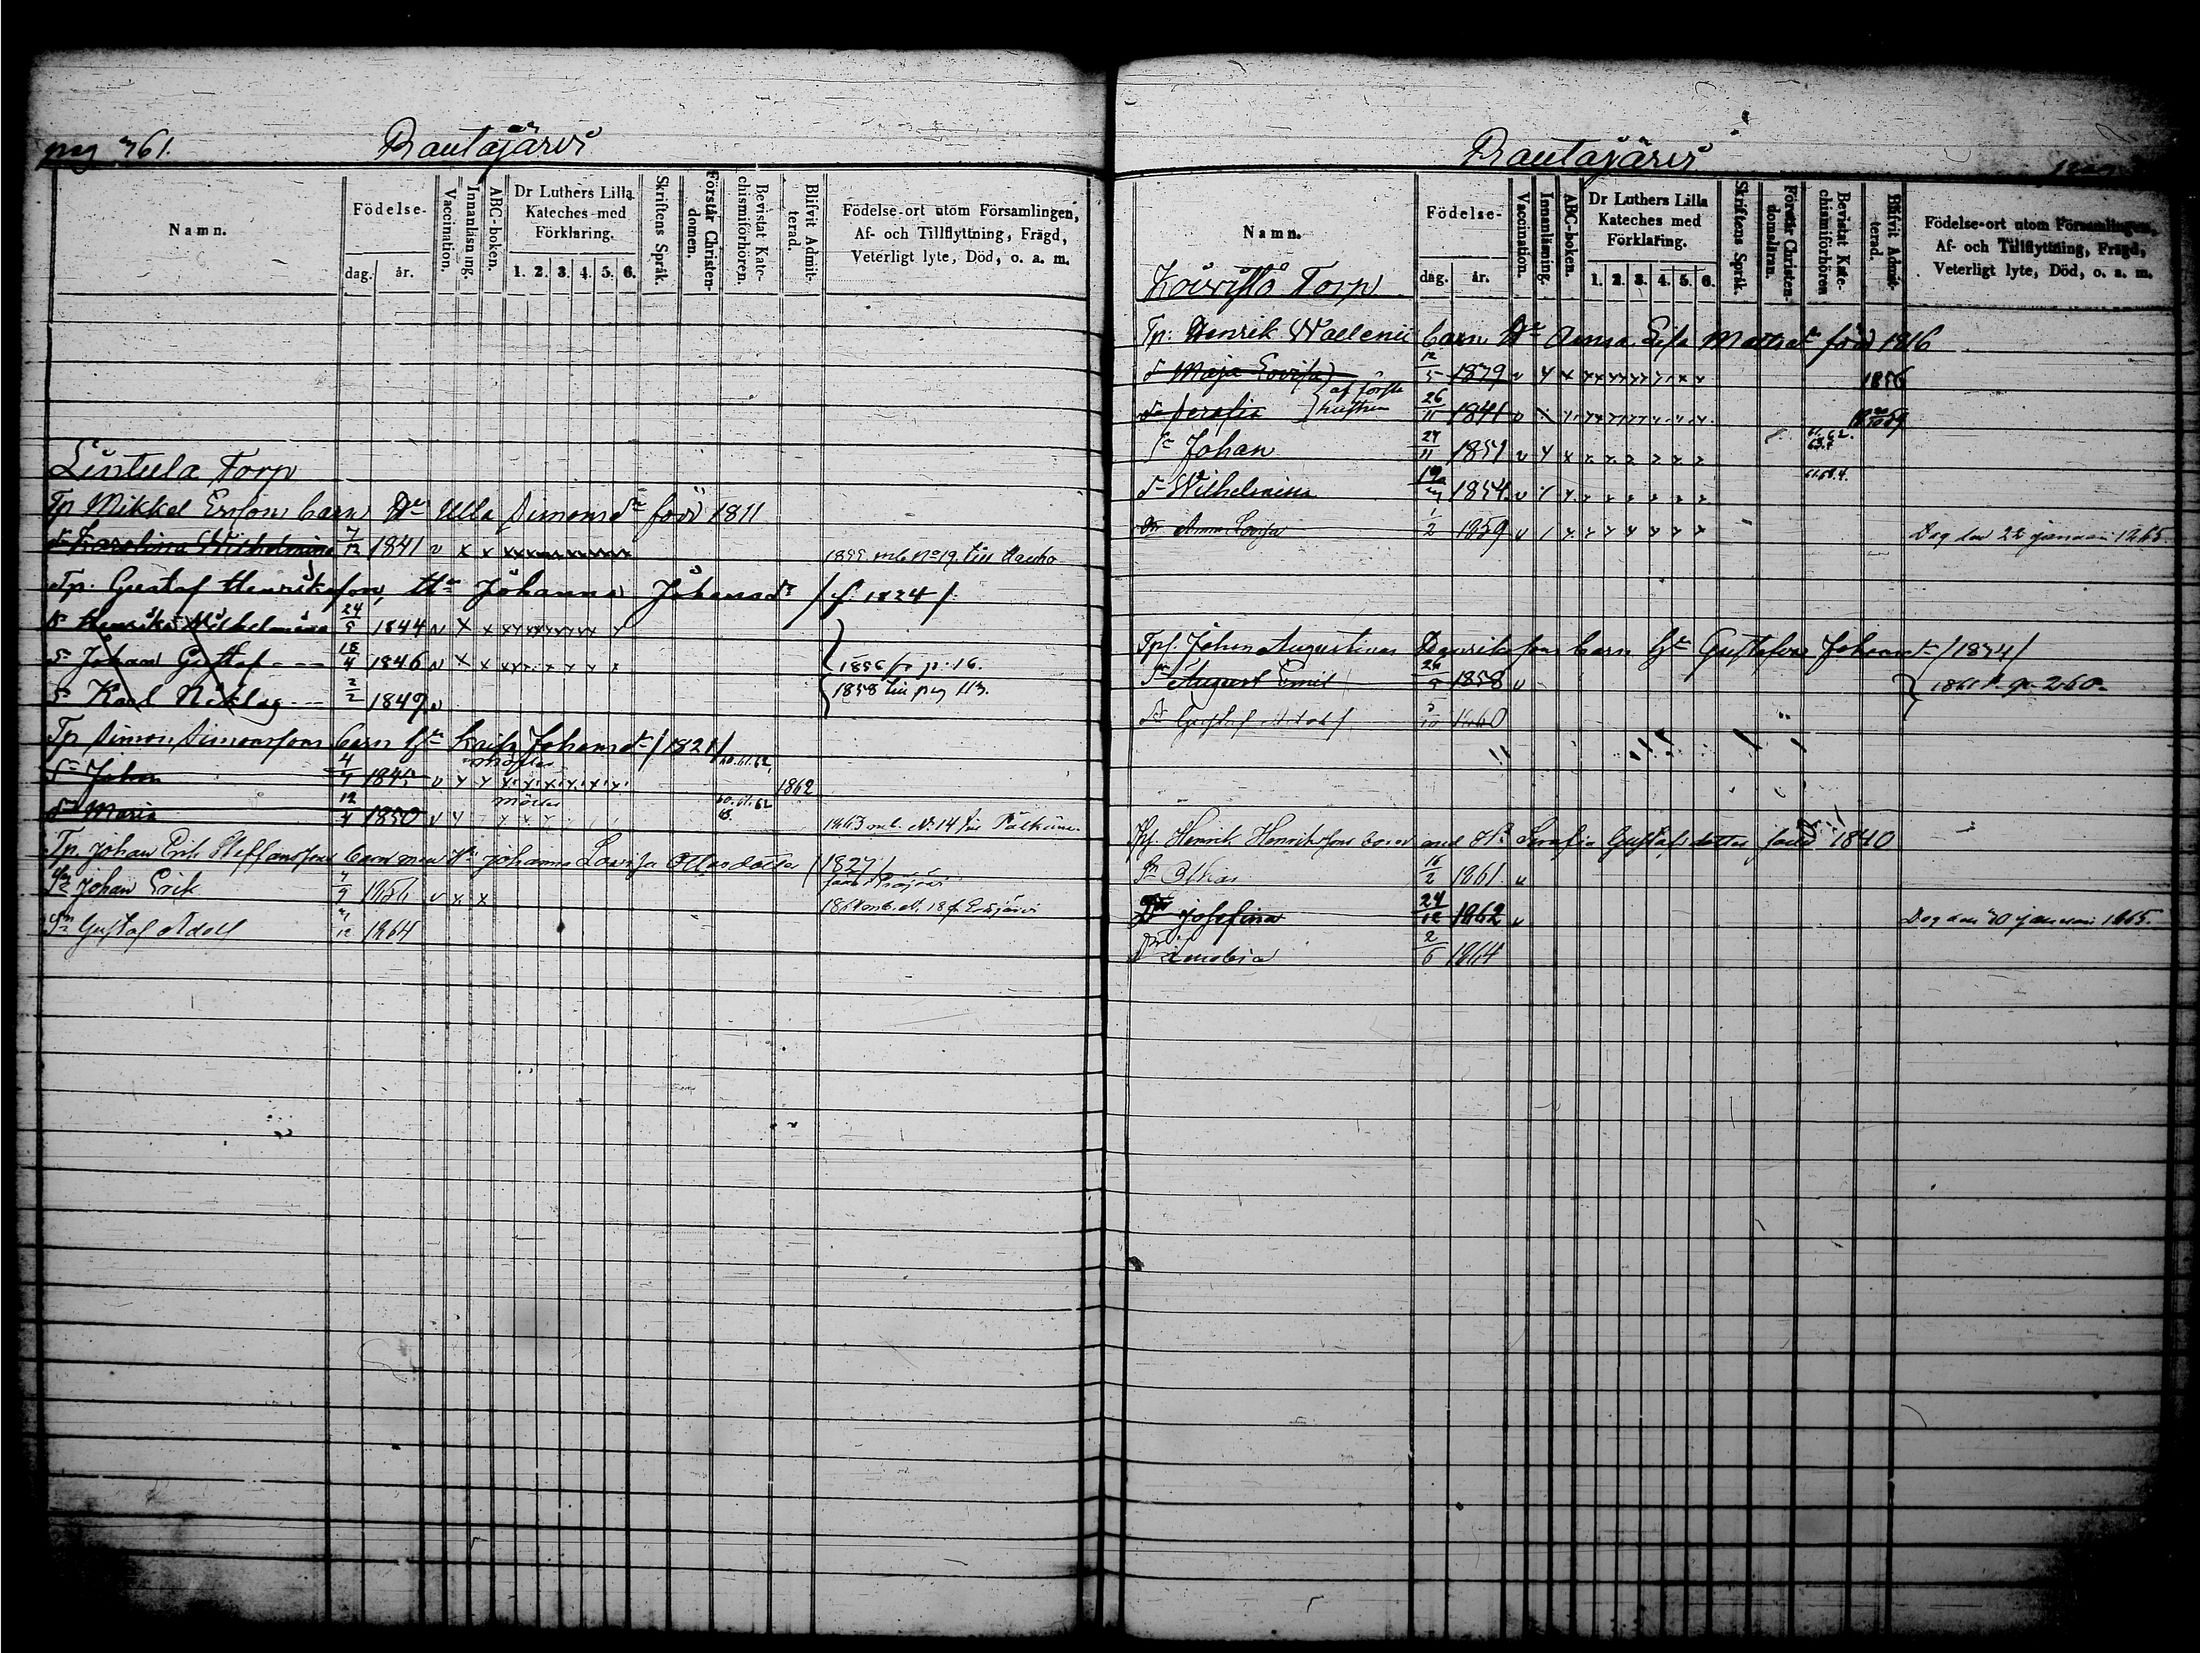 pag 361.
Rautajärvi
Namn.
Födelse-
dag. år.
Vaccination.
Innanläsning.
ABC-boken.
Dr Luthers Lilla Kateches med Förklaring.
1. 2. 3. 4. 5. 6.
Skriftens Språk.
Förstår Christen-domen.
Bevistat Kate-chismiförhören.
Blifvit Admit-terad.
Födelse-ort utom Församlingen, Af- och Tillflyttning, Frägd, Veterligt lyte, Död, o. a. m.
Lintula Torp
Tp Mikkel Ersons barn Hu Ulla Simonsdr född 1811
dr Karolina Wilhelmina 7/12 1841 v x x x x x x x x 1855 mb No 19. till Hauho
Tp. Gustaf Henriksson, Hu Johanna Johansdr / f. 1824 /
dr Henrika Wilhelmina 24/5 1844 v x x x x x x x x x
Sn Johan Gustaf 18/4 1846 v x x x x x x x x 1856 fr p. 16.
Sn Karl Niklas 2/2 1849 v 1858 till pag 113.
Tp Simon Simonssons barn Hu Kaisa Johansdr / 1821 /
Sn Johan 4/4 1845 v x x x x x x x x 60.61.62. 1862
dr Maria 12/4 1850 v x x x x 60.61.62 1863 mb. No 14 fr Pälkäne
Tp. Johan Erik Steffanssons barn med Hu Johanna Lovisa Ottosdotter / 1827 /
Sn Johan Erik 1856 v x x
Sn Gustaf Adolf 1864
Rautajärvi
Namn.
Födelse-
dag. år.
Vaccination.
Innanläsning.
ABC-boken.
Dr Luthers Lilla Kateches med Förklaring.
1. 2. 3. 4. 5. 6.
Skriftens Språk.
Förstår Christen-domsläran.
Bevistat Kate-chismiförhören
Blifvit Admit-terad.
Födelse-ort utom Församlingen, Af- och Tillflyttning, Frägd, Veterligt lyte, Död, o. a. m.
Koivisto Torp
Tp: Henrik Wallenii barn Hu Anna Lisa Mattsdr född 1816
dr Maja Lovisa 12/5 1839 v x x x x x x x x x 1856
dr Serafia } af förste hustrun 26/11 1841 v x
Sn Johan 24/11 1851 v x x
dr Wilhelmina 1854 v x x
Dr Anna Lovisa 1/2 1859 v Dog den 22 januari 1865
Tp. Johan Augustinus Henrikssons barn Hu Gustafva Johansdr / 1834 /
Sn August Emil 1858 v
Sn Gustaf Adolf 1860 } 1861 fr p. 260.
Henrik Henrikssons barn med Hu Serafia Gustafsdotter född 1840
Sn Oskar 16/2 1861 v
Dr Josefina 24/12 1862 v Dog den 30 januari 1865.
Dr Zenobia 2/6 1864